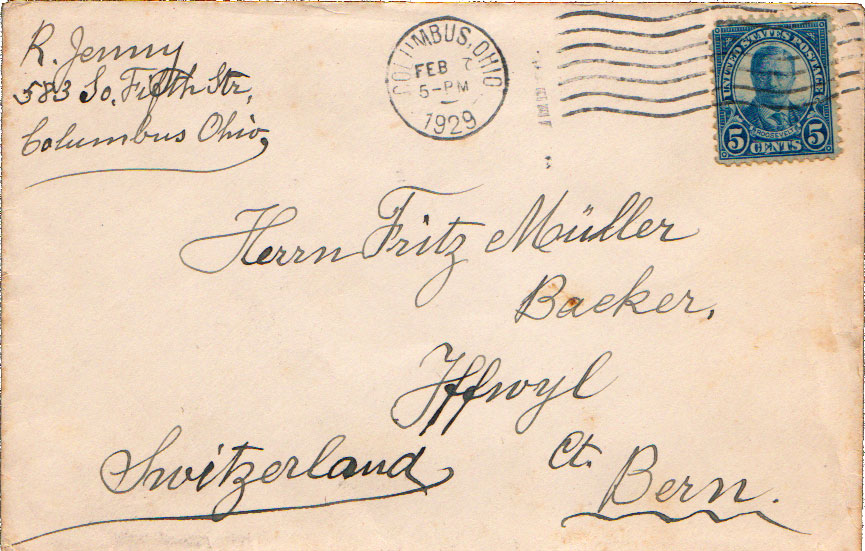 R. Jenny
583 So. Fifth Str,
Columbus Ohio,
COLUMBUS, OHIO
FEB 7
5-PM
1929
UNITED STATES POSTAGE
ROOSEVELT
5 CENTS 5
Herrn Fritz Müller
Backer,
Iffwyl
Ct. Bern.
Switzerland